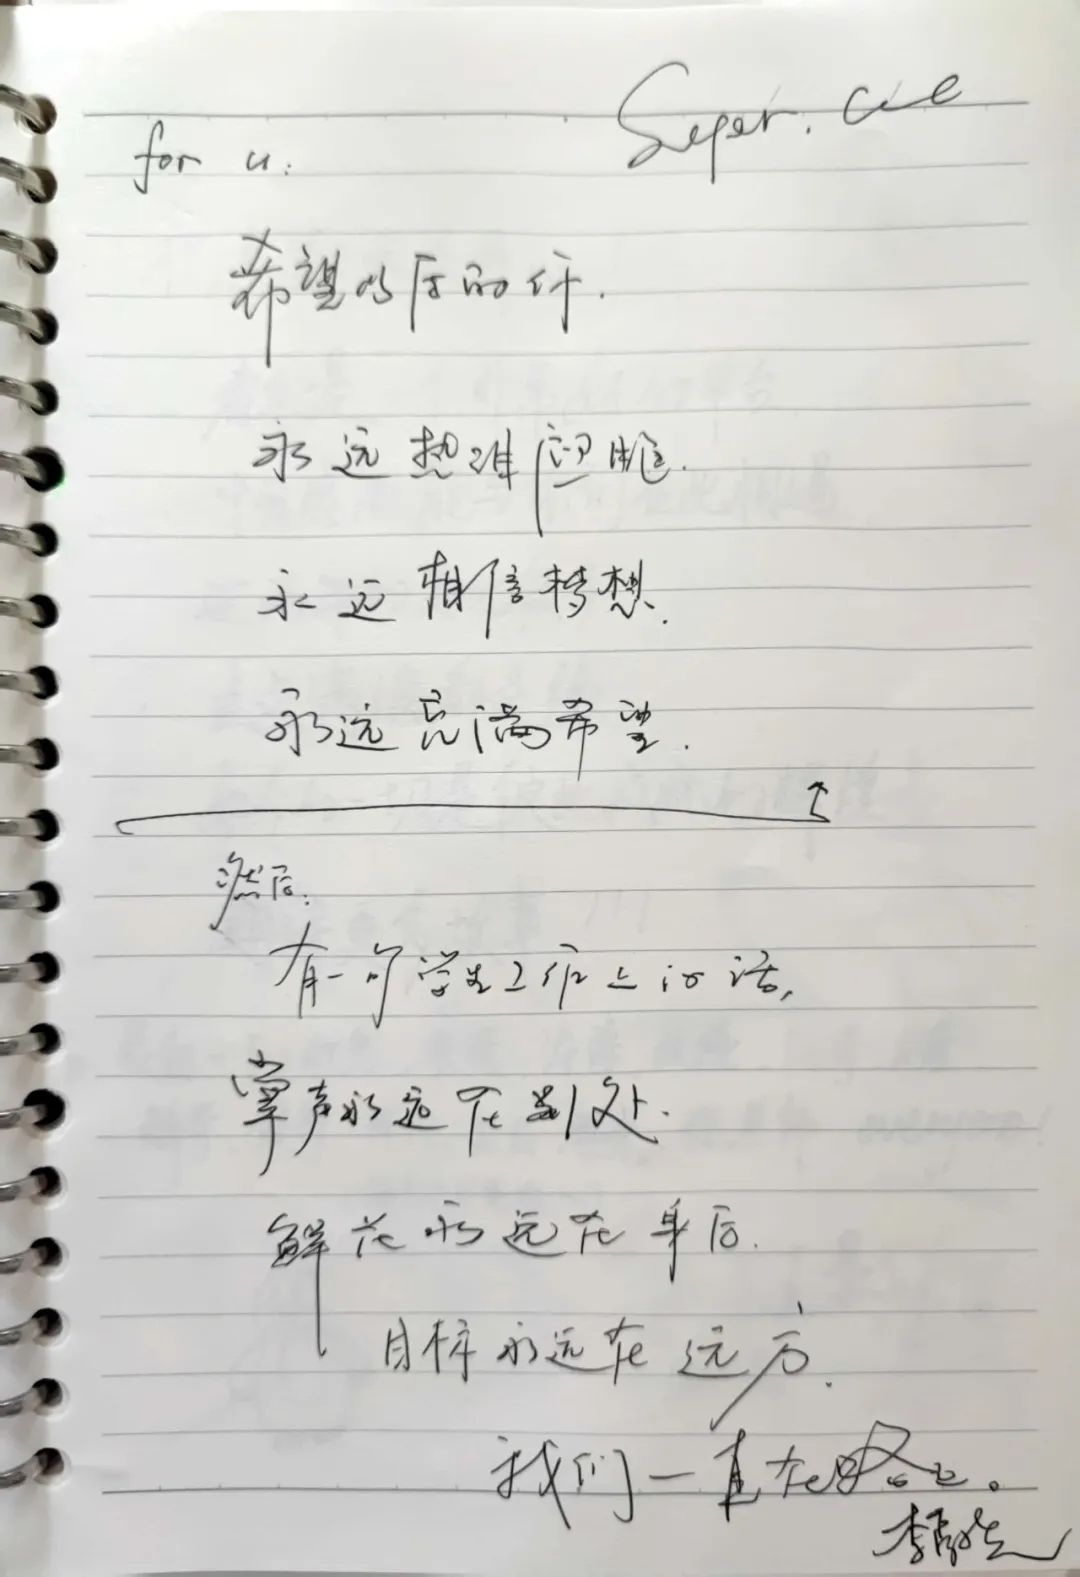 Super.
for u:
希望以后的仟.
永远热泪盈眶.
永远相信梦想.
永远充满希望.
然后:
有一句学生工作上的话,
掌声永远在别处.
鲜花永远在身后.
目标永远在远方.
我们一直在路上。